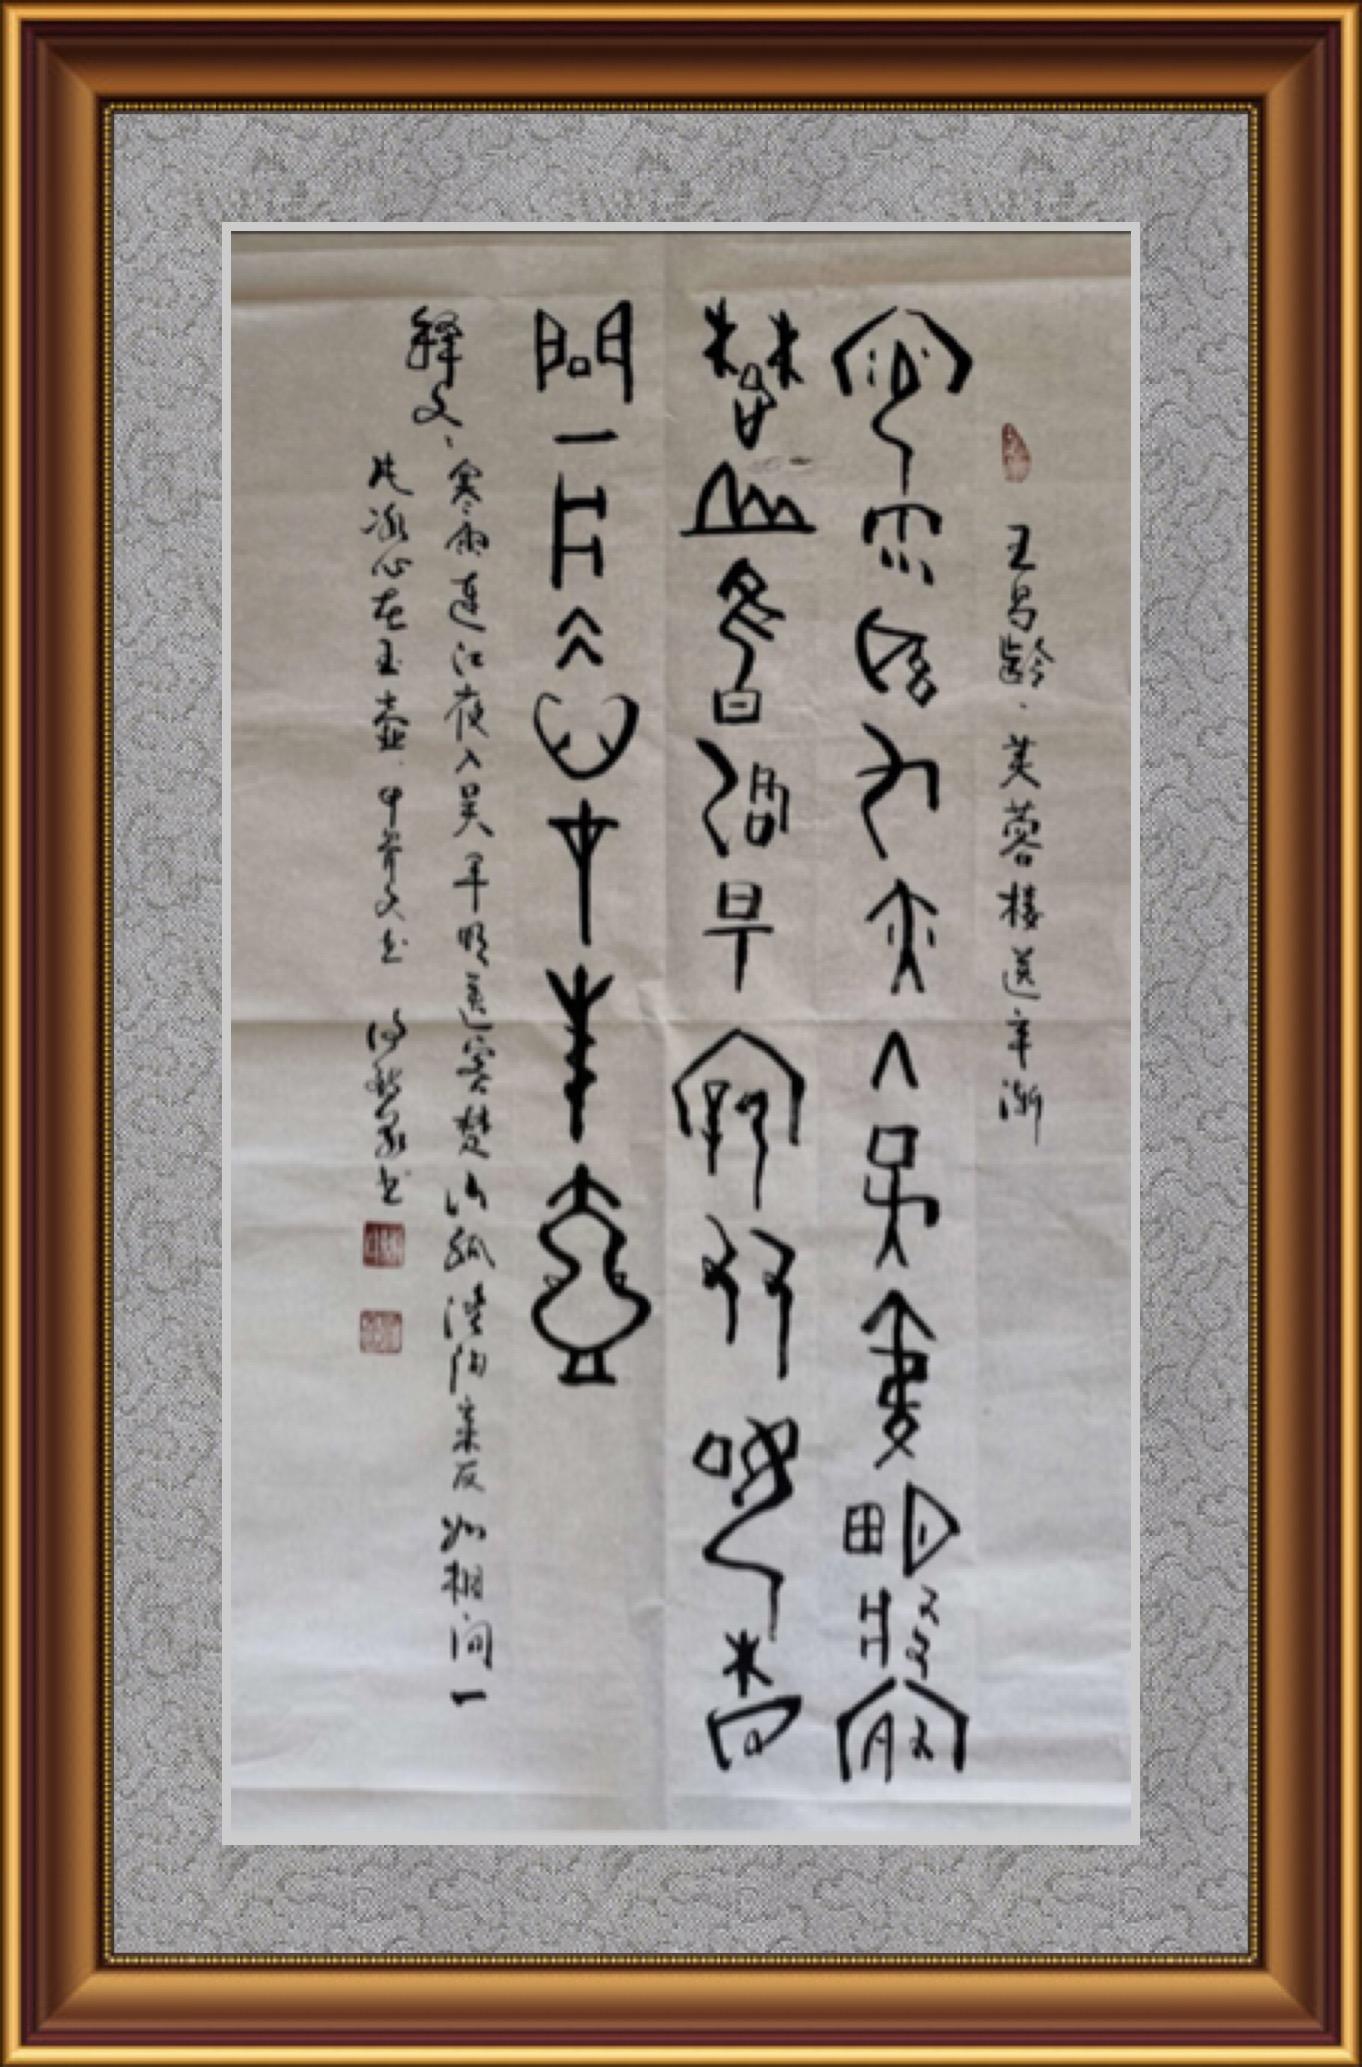 王昌龄、芙蓉楼送辛渐
寒雨连江夜入吴平明送客
楚山孤洛阳亲友如相
問一片冰心在玉壶
释文、寒雨连江夜入吴平明送客楚山孤洛阳亲友如相问一
片冰心在玉壶、甲骨文书